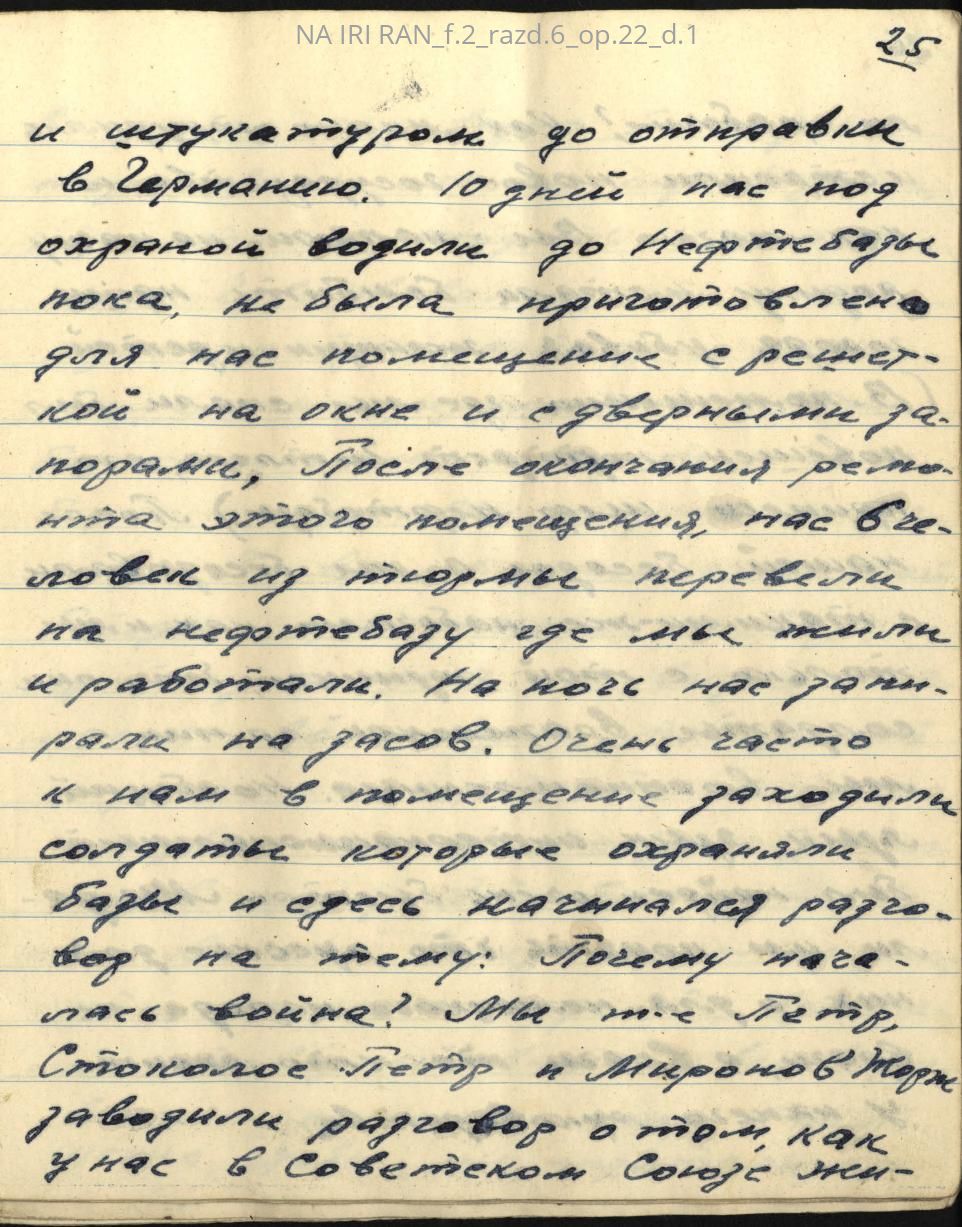 NA IRI RAN_f.2_razd.6_op.22_d.1
25
и штукатуром до отправки
в Германию. 10 дней нас под
охраной водили до Нефтебазы
пока, не была приготовлено
для нас помещение с решет-
кой на окне и с дверными за-
порами, После окончания ремо-
нта этого помещения, нас 6 че-
ловек из тюрмы перевели
на нефтебазу где мы жили
и работали. На ночь нас запи-
рали на засов. Очень часто
к нам в помещение заходили
солдаты которые охраняли
базы и сдесь начинался разго-
вор на тему: Почему нача-
лась война? Мы т-е Петр,
Стоколос Петр и Миронов Жорж
заводили разговор о том, как
у нас в Советском Союзе жи-